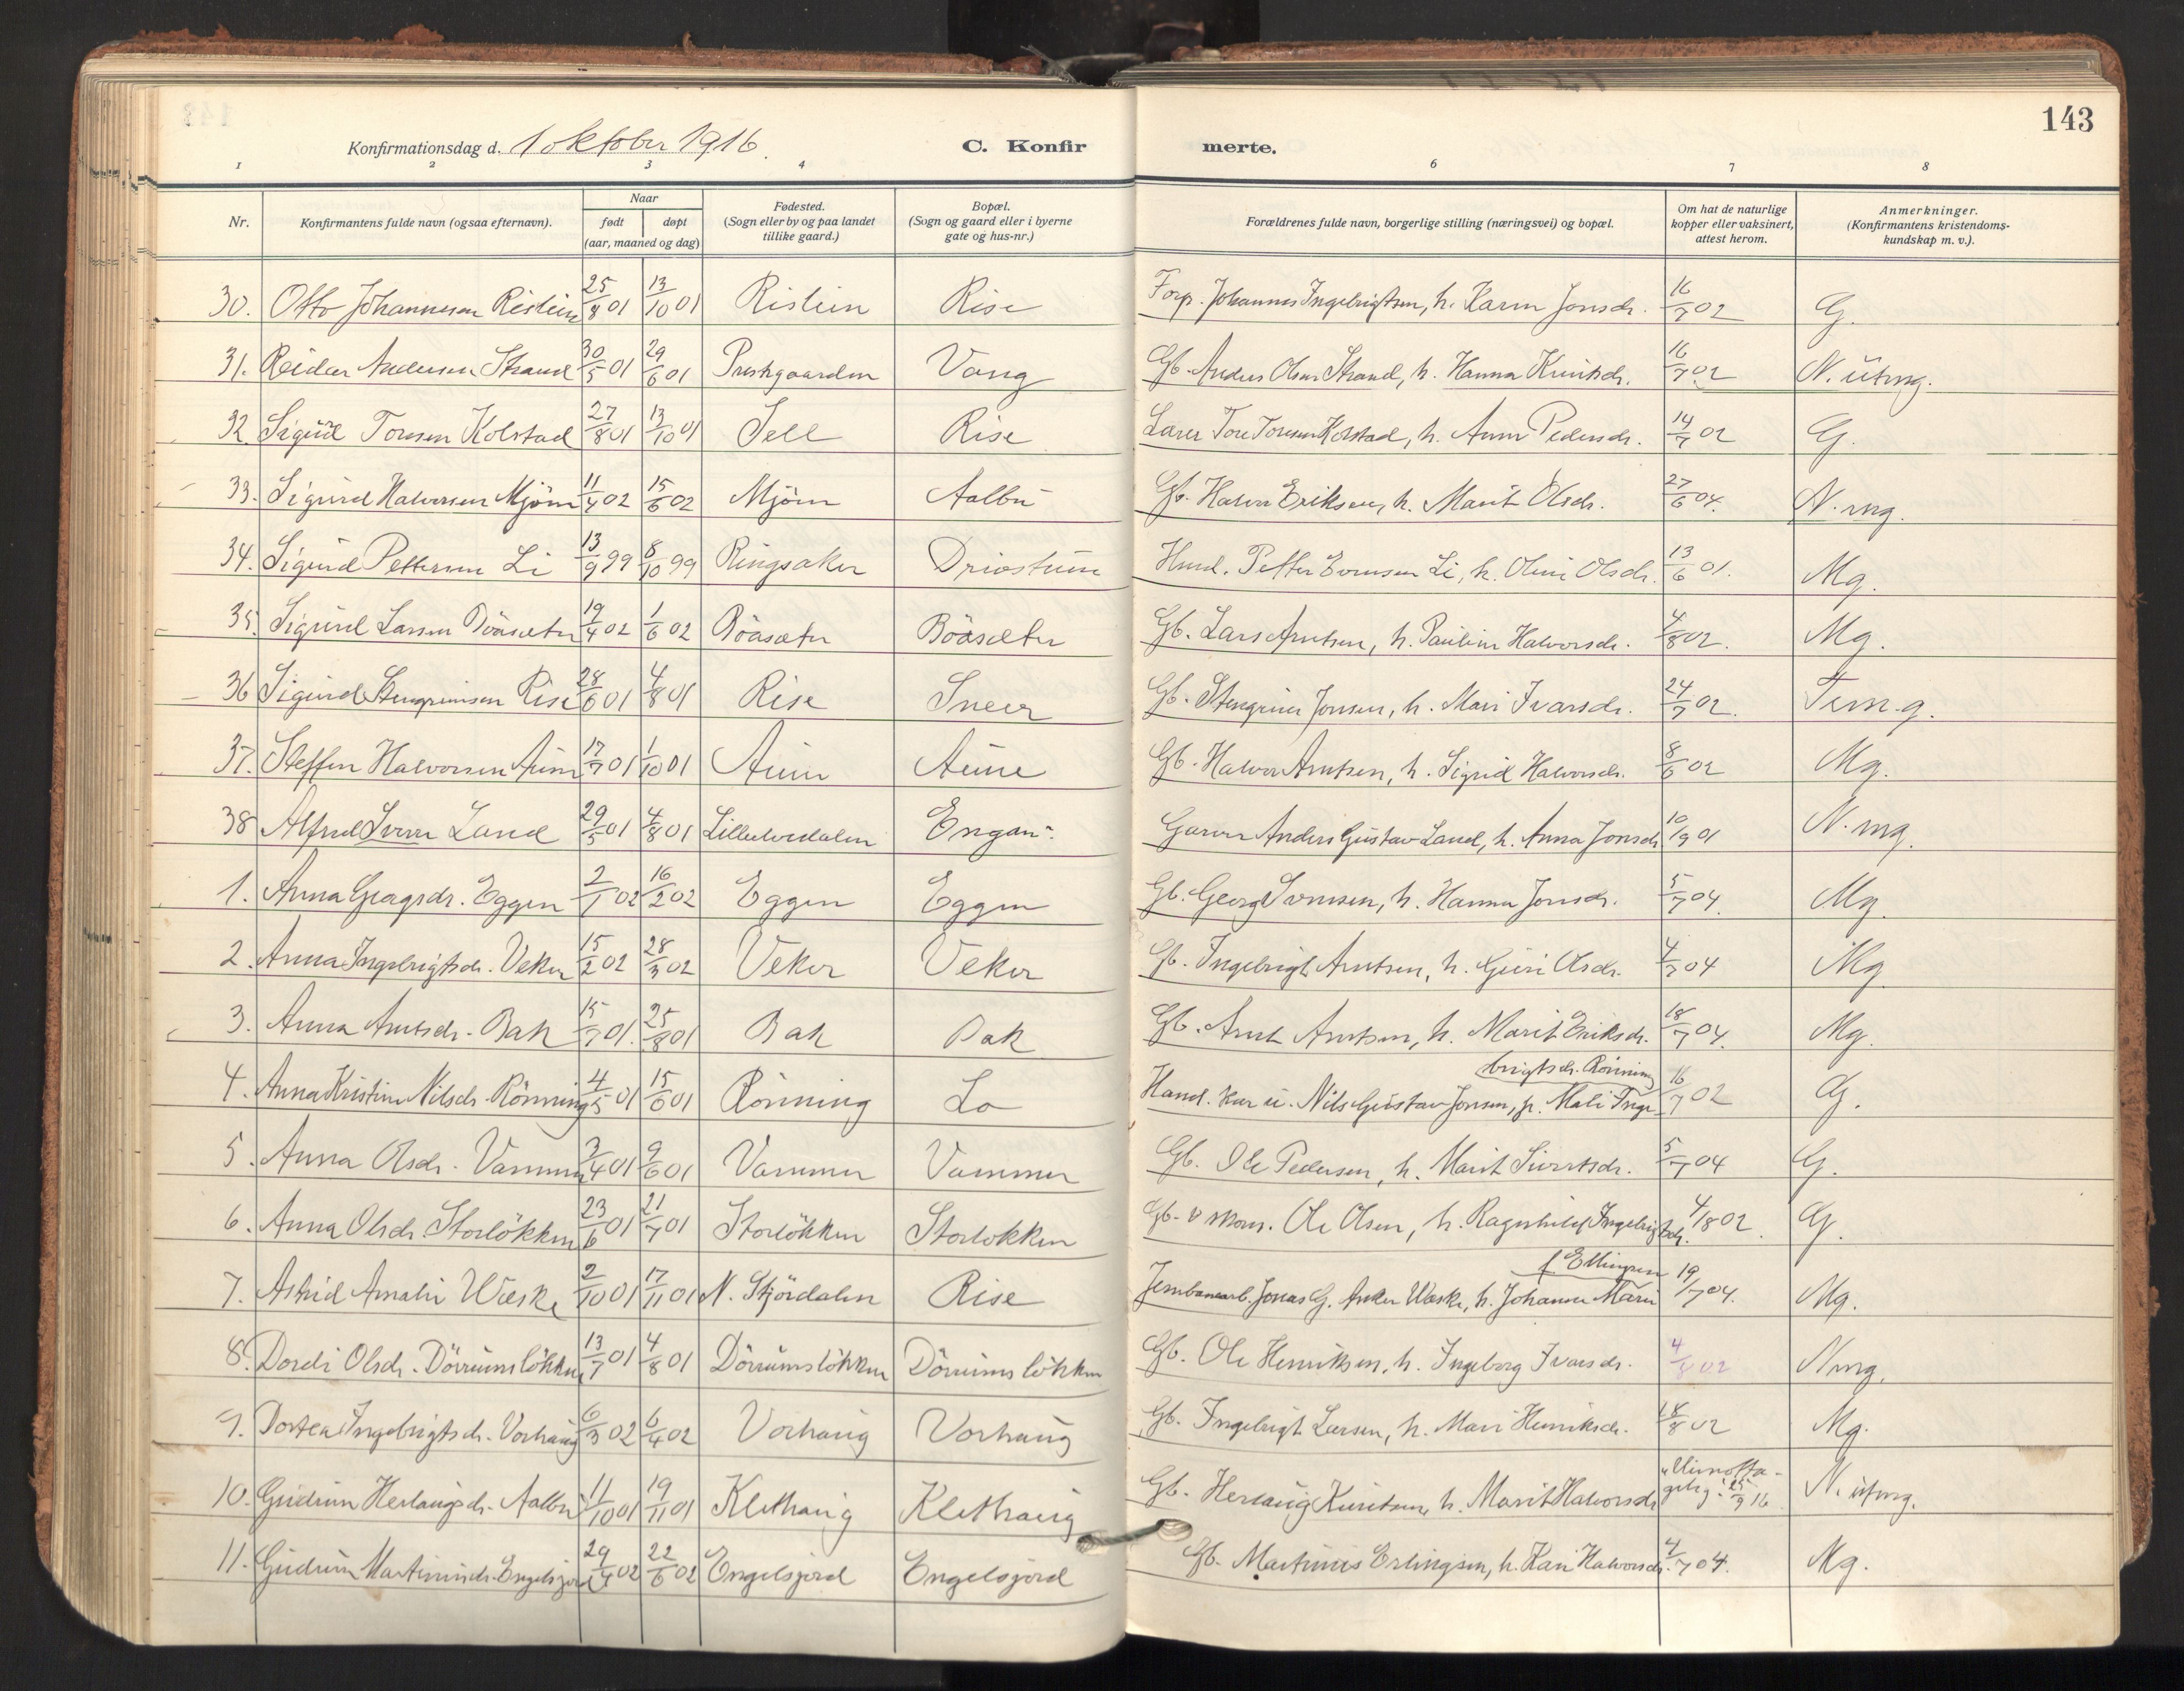 143
Konfirmationsdag d. 1 oktober 1916. C. Konfir merte.
1 2 3 4 6 7 8
Nr. Konfirmantens fulde navn (ogsaa efternavn). Naar født døpt (aar, maaned og dag) Fødested. (Sogn eller by og paa landet tillike gaard.) Bopæl. (Sogn og gaard eller i byerne gate og hus-nr.) Forældrenes fulde navn, borgerlige stilling (næringsvei) og bopæl. Om hat de naturlige kopper eller vaksinert, attest herom. Anmerkninger. (Konfirmantens kristendoms-kundskap m. v.).
30. Otto Johannesen Ristein 25/8 01 13/10 01 Ristein Rise Forp. Johannes Ingebrigtsen, h. Karen Jonsdr. 16/7 02 G.
31. Reidar Andersen Strand 30/5 01 29/6 01 Prestgaarden Vang Gb. Anders Olsen Strand, h. Hanna Knutsdr. 16/7 02 N. utmg.
32 Sigurd Toresen Kolstad 27/8 01 13/10 01 Sell Rise Lærer Tore Toresen Kolstad, h. Anne Pedersdr. 14/7 02 G.
33. Sigurd Halvorsen Mjöen 11/4 02 15/6 02 Mjöen Aalbu Gb. Halvor Eriksen, h. Marit Olsdr. 27/6 04. N. mg.
34. Sigurd Pettersen Li 13/9 99 8/10 99 Ringsaker Drivstuen Husd. Petter Evensen Li, h. Oline Olsdr. 13/6 01. Mg.
35. Sigurd Larsen Böasæter 19/4 02 1/6 02 Böasæter Böasæter Gb. Lars Arntsen, h. Pauline Halvorsdr. 4/8 02. Mg.
36 Sigurd Stengrimsen Rise 28/6 01 4/8 01 Rise Sneer Gb. Stengrim Jonsen, h. Mari Ivarsdr. 24/7 02. Tem. g.
37. Steffen Halvorsen Aune 17/7 01 1/10 01 Aune Aune Gb. Halvor Arntsen, h. Sigrid Halvorsdr. 8/6 02 Mg.
38 Alfred Sverre Land 29/5 01 4/8 01 Lilleelvedalen Engan. Garver Anders Gustav Land, h. Anna Jonsdr. 10/9 01 N. mg.
1. Anna Georgsdr. Eggen 2/1 02 16/2 02 Eggen Eggen Gb. Georg Svensen, h. Hanna Jonsdr. 5/7 04. Mg.
2. Anna Ingebrigtsdr. Veker 15/2 02 28/3 02 Veker Veker Gb. Ingebrigt Arntsen, h. Guri Olsdr. 4/7 04 Mg
3. Anna Arntsdr. Bak 15/7 01. 25/8 01 Bak Bak Gb. Arnt Arntsen, h. Marit Eriksdr. 18/7 04. Mg.
4. Anna Kristine Nilsdr. Rönning 4/5 01 15/6 01 Rönning Lo Hand. Nils Gustav Jonsen, h. Mali Inge brigtsdr. Rönning 16/7 02 G.
5. Anna Olsdr. Vammen 3/4 01 9/6 01 Vammen Vammen Gb. Ole Pedersen, h. Marit Sivertsdr. 5/7 04 G.
6. Anna Olsdr. Storlökken 23/6 01 21/7 01 Storlökken Storlokken Gb. v skom. Ole Olsen, h. Ragnhild Ingebrigtsdr. 4/8 02. G.
7. Astrid Amalie Wæske 2/10 01 17/11 01 N. Stjördalen Rise Jernbanearb. Jonas G. Anker Wæske, h. Johanne Marie f Ellingsen 19/7 04. Mg.
8. Dordi Olsdr. Dörrumslökken 13/7 01 4/8 01 Dörrumslökken Dörrumslökken Gb. Ole Henriksen, h. Ingeborg Ivarsdr. 4/8 02 N mg.
9. Dortea Ingebrigtsdr. Vorhaug 6/3 02 6/4 02 Vorhaug Vorhaug Gb. Ingebrigt Larsen, h. Mari Henriksdr. 18/8 02 Mg.
10. Gudrun Herlaugsdr. Aalbu 11/10 01 19/11 01 Klethaug Klethaug Gb. Herlaug Knutsen, h. Marit Halvorsdr "Uimotta-gelig" 25/9 16 N. utmg.
11. Gudrun Martinusdr. Engelsjord 29/4 02 22/6 02 Engelsjord Engelsjord Gb. Martinus Erlingsen, h. Kari Halvorsdr. 4/7 04. Mg.